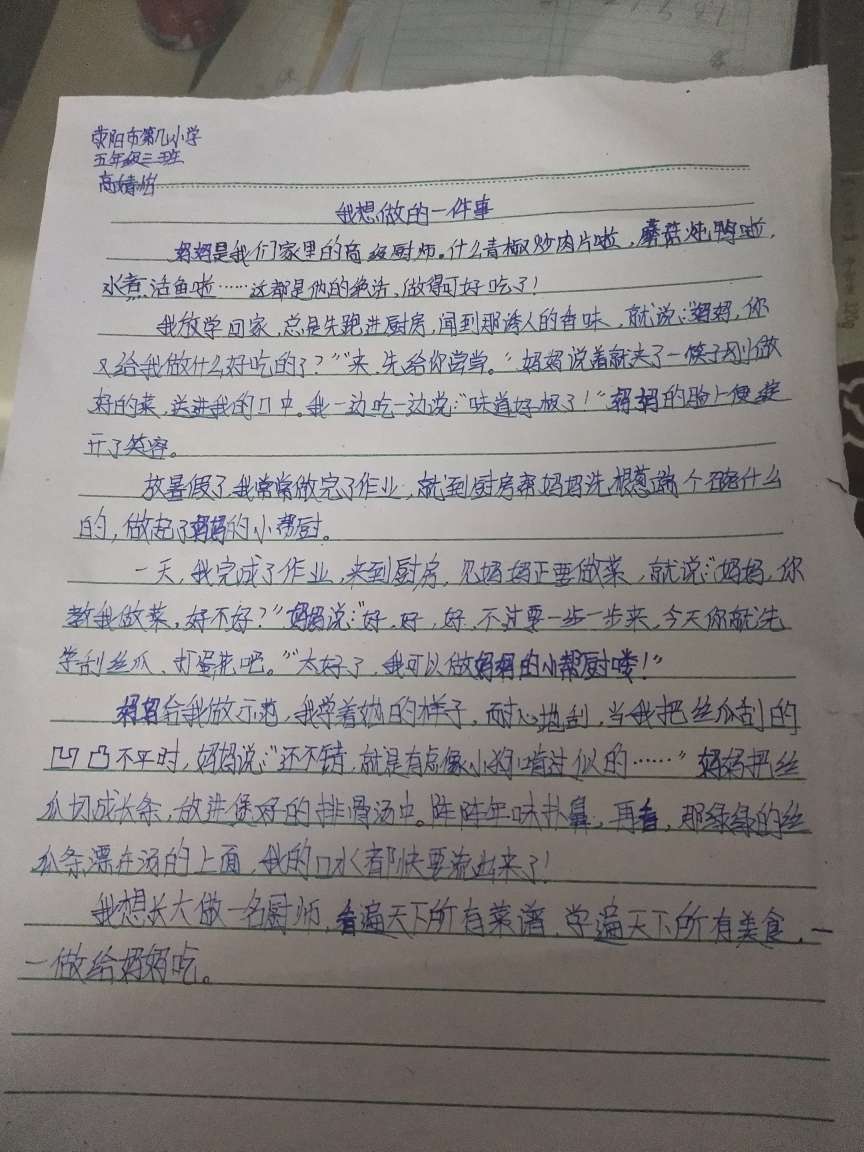 荥阳市第几小学
五年级三班
高婧怡
我想做的一件事
妈妈是我们家里的高级厨师。什么青椒炒肉片啦，蘑菇炖鸭啦，
水煮活鱼啦……这都是他的绝活，做得可好吃了！
我放学回家，总是先跑进厨房，闻到那诱人的香味，就说：“妈妈，你
又给我做什么好吃的了？”“来，先给你尝尝。”妈妈说着就夹了一筷子刚做
好的菜，送进我的口中。我一边吃一边说：“味道好极了！”妈妈的脸上便绽
开了笑容。
放暑假了，我常常做完了作业，就到厨房帮妈妈洗根葱，端个碗什么
的，做起了妈妈的小帮厨。
一天，我完成了作业，来到厨房，见妈妈正要做菜，就说：“妈妈，你
教我做菜，好不好？”妈妈说：“好，好，好，不过要一步一步来，今天你就先
学刮丝瓜、打蛋花吧。”“太好了，我可以做妈妈的小帮厨喽！”
妈妈给我做示范，我学着她的样子，耐心地刮，当我把丝瓜刮的
凹凸不平时，妈妈说：“还不错，就是有点像小狗啃过似的……”妈妈把丝
瓜切成长条，放进煲好的排骨汤中。阵阵香味扑鼻，再看，那绿绿的丝
瓜条漂在汤的上面，我的口水都快要流出来了！
我想长大做一名厨师，看遍天下所有菜谱，学遍天下所有美食，一
一做给妈妈吃。